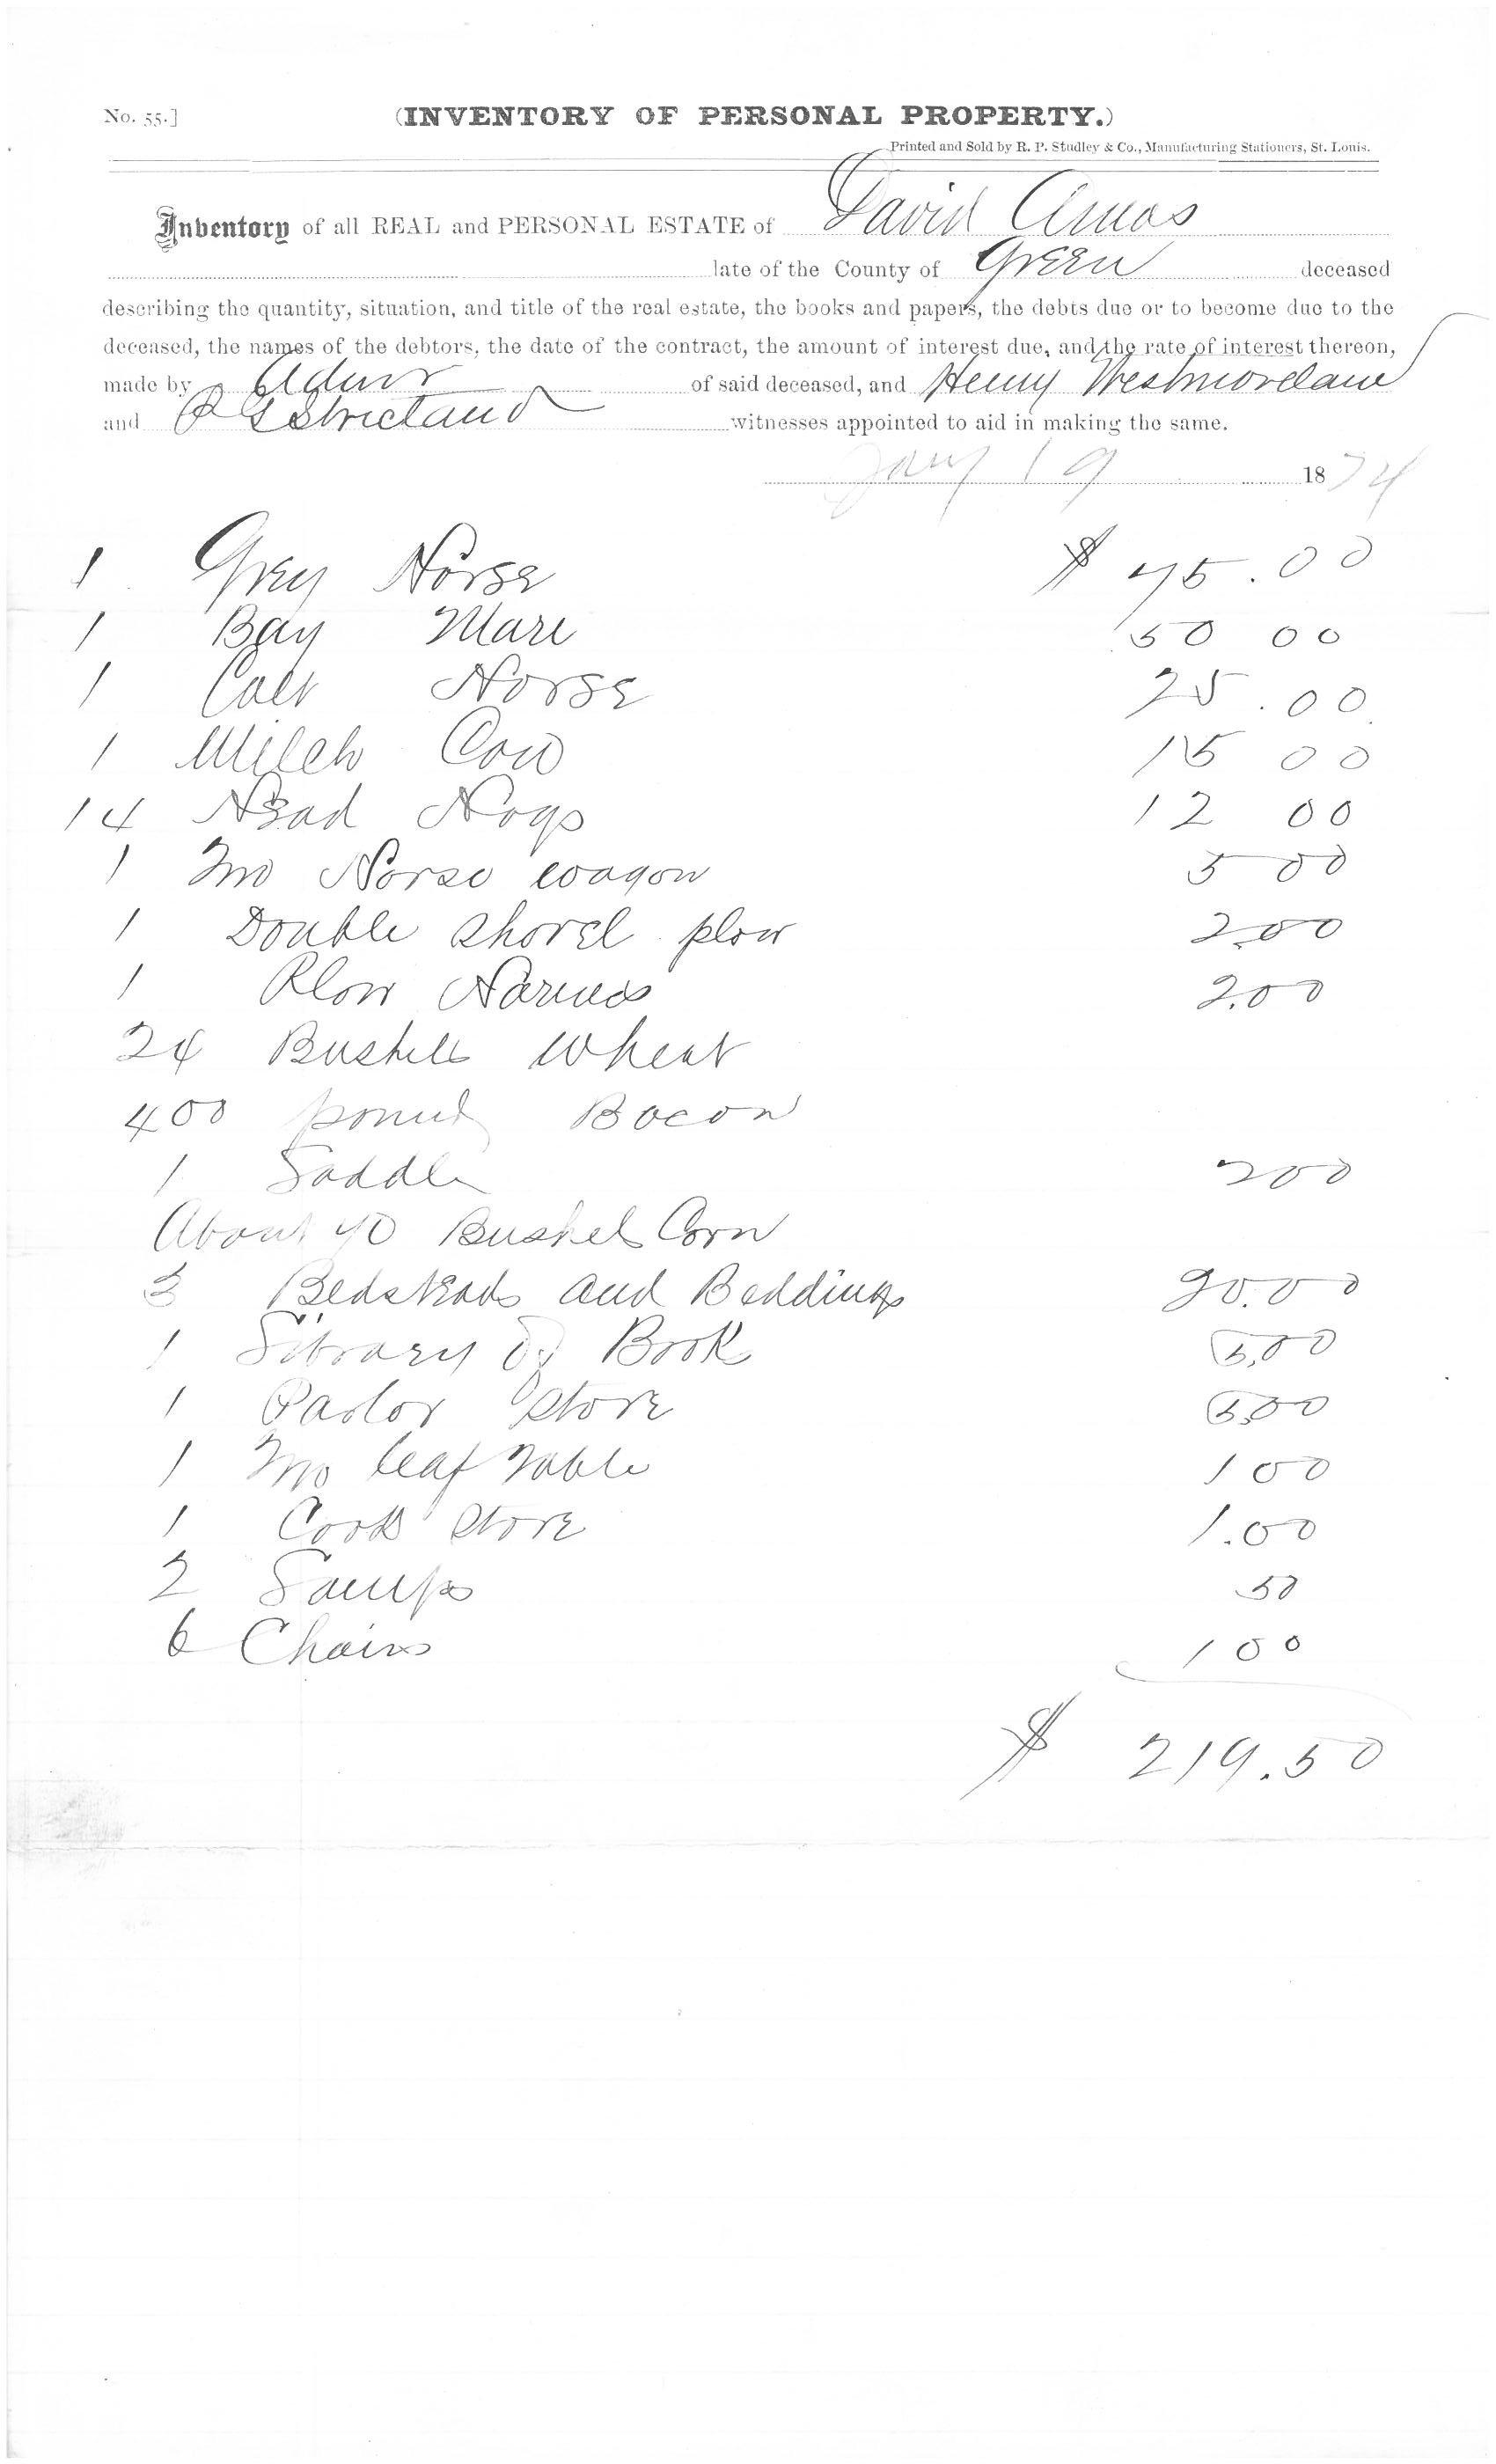 No. 55.]
(INVENTORY OF PERSONAL PROPERTY.)
Printed and Sold by R. P. Studley & Co., Manufacturing Stationers, St. Louis.
Inventory of all REAL and PERSONAL ESTATE of David Amos
late of the County of Green deceased
describing the quantity, situation, and title of the real estate, the books and papers, the debts due or to become due to the
deceased, the names of the debtors, the date of the contract, the amount of interest due, and the rate of interest thereon,
made by Admr of said deceased, and Henry Westmoreland
and Strictland witnesses appointed to aid in making the same.
Jany 19 1874
1 Grey Horse $ 75.00
1 Bay Mare 50 00
1 Colt Horse 25.00
1 Milch Cow 15 00
14 Head Hogs 12 00
1 Two Horse wagon 5 00
1 Double shovel plow 2.00
1 Plow Harness 2.00
24 Bushels Wheat
400 pound Bacon
1 Saddle 2 00
About 40 Bushels Corn
3 Bedsteads and Beddings 20.00
1 Library of Book 5.00
1 Parlor Stove 5.00
1 Two leaf Table 1 00
1 Cook Stove 1.00
2 Lamps 50
6 Chairs 1 00
$ 219.50